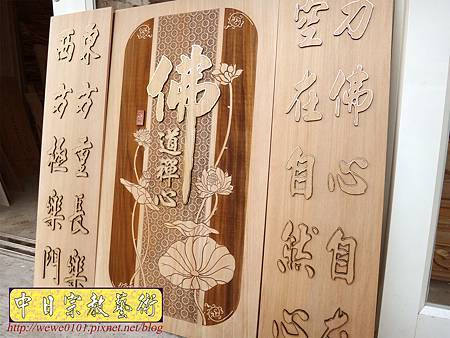 刀佛心自在
空在自然心
佛
道禪心
東方重長樂
西方極樂門
中日宗教藝術
http://wewe0101.pixnet.net/blog